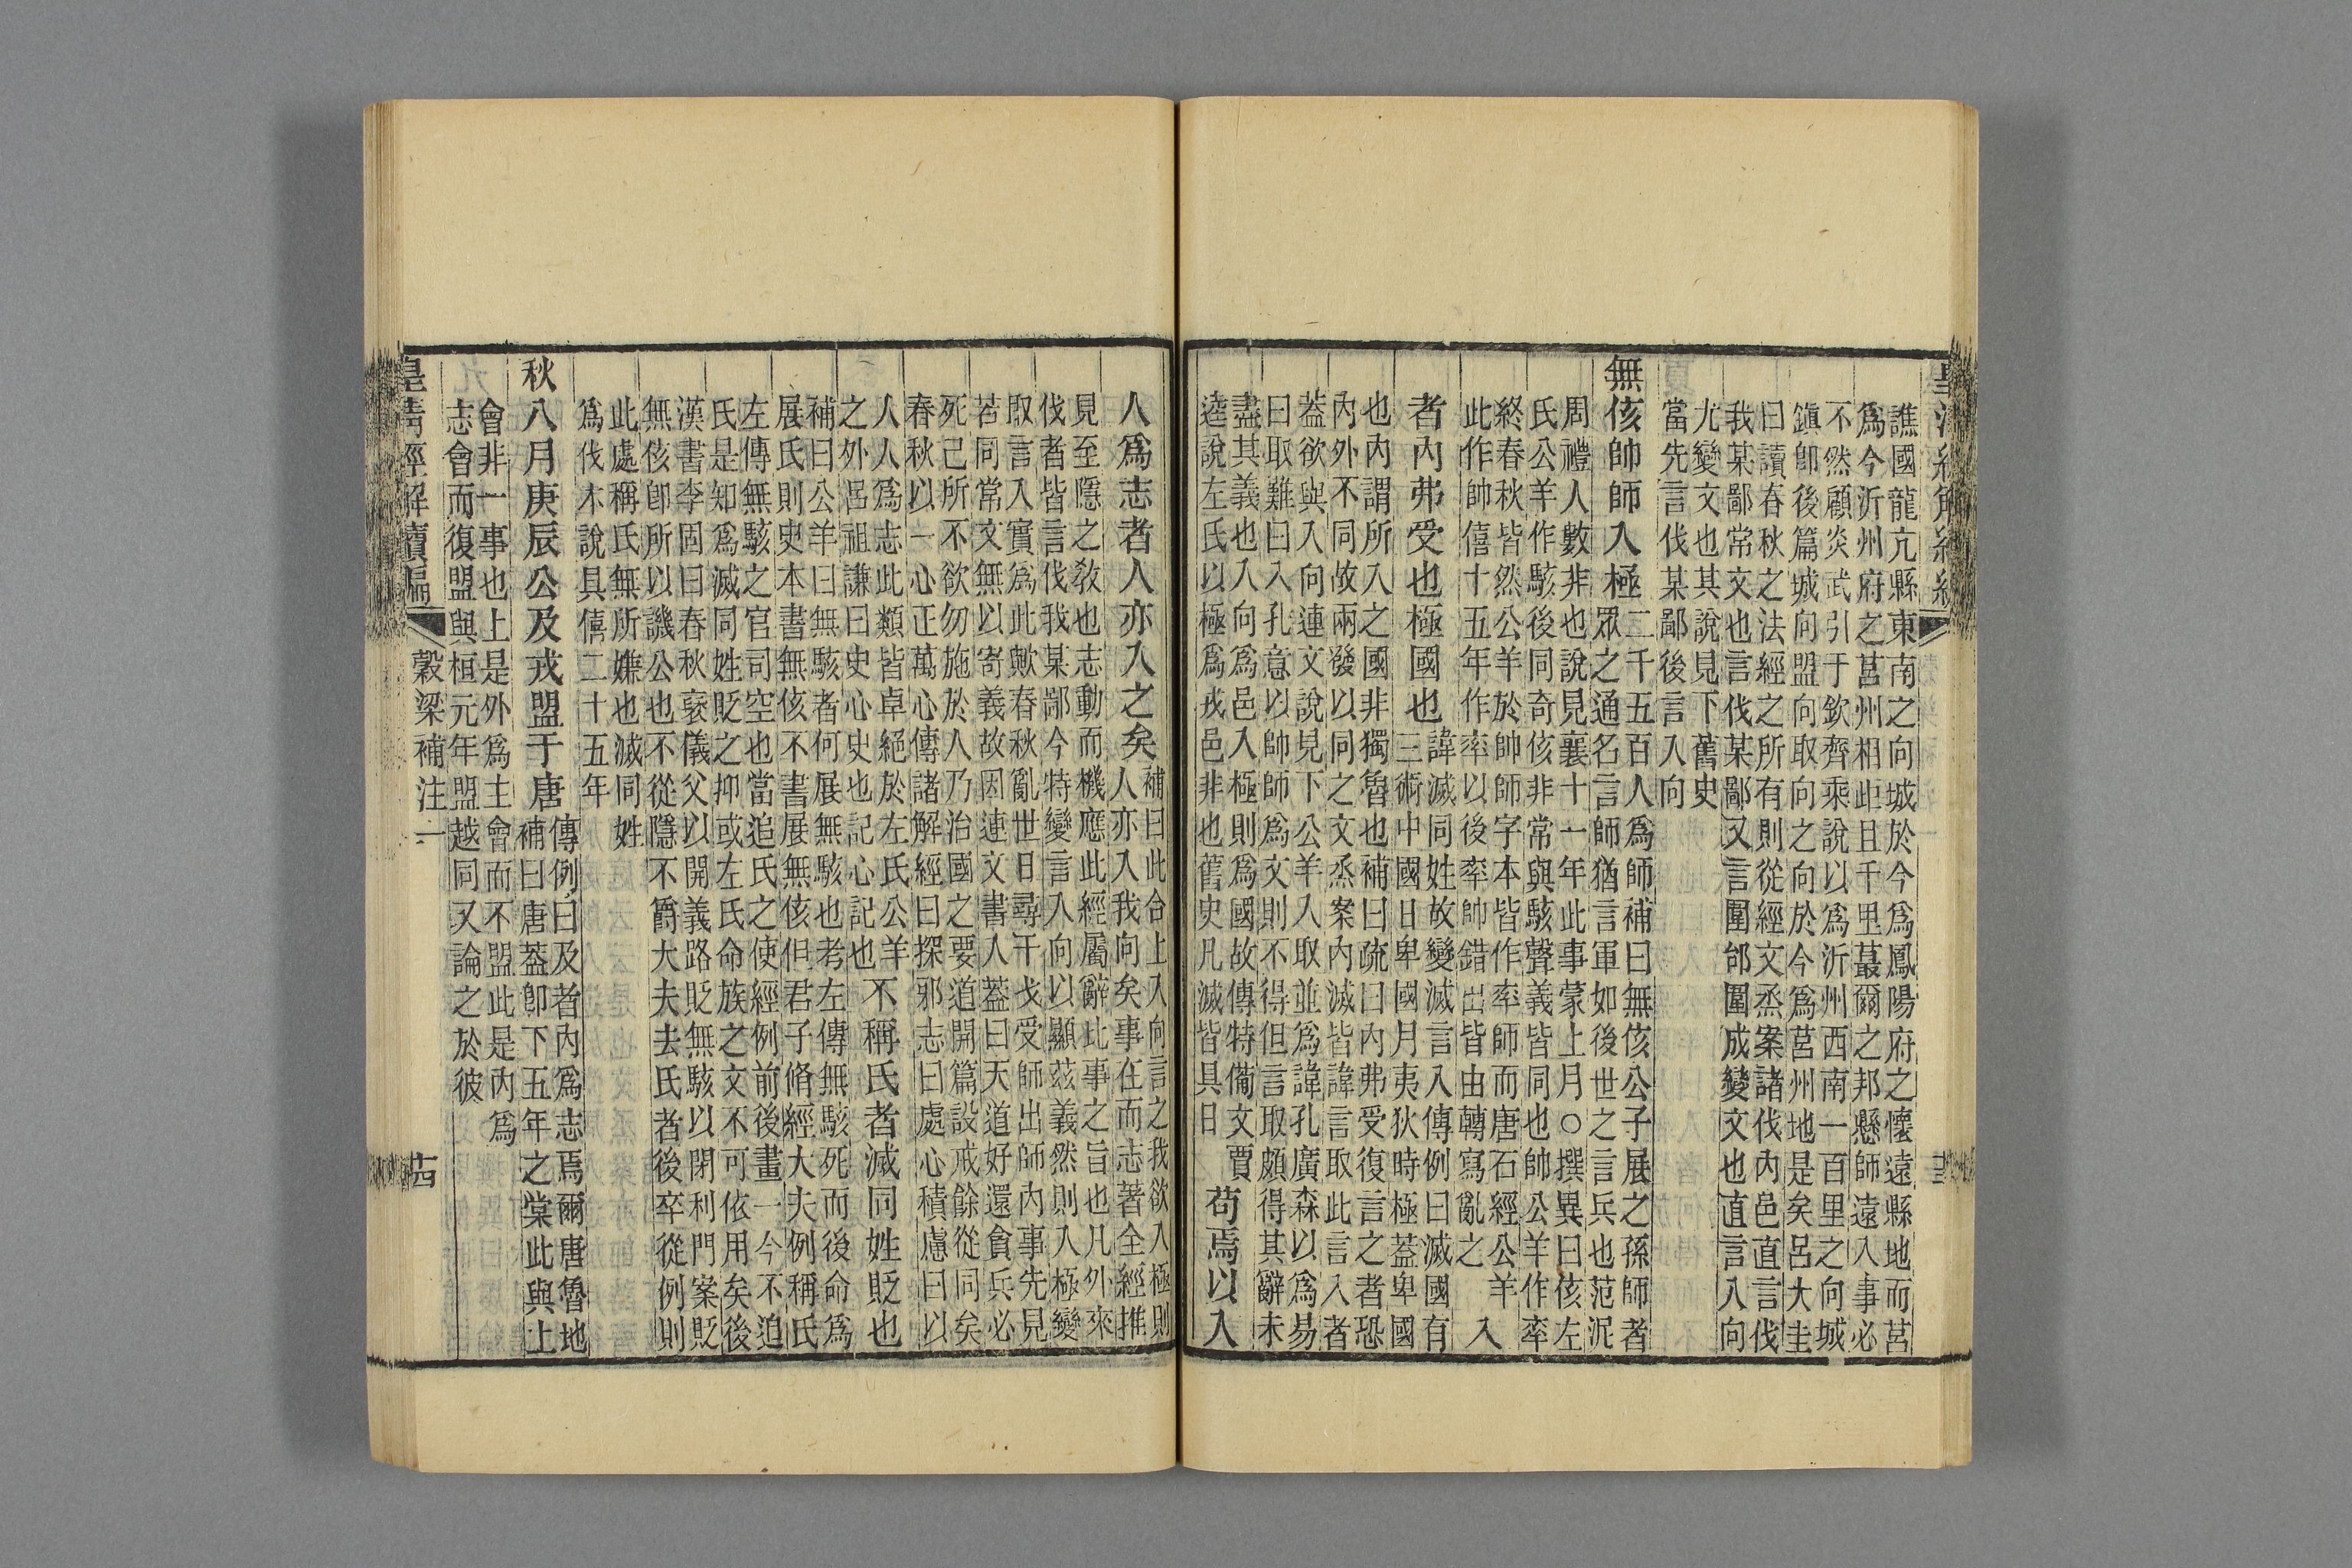 譙國龍亢縣東南之向城於今爲鳳陽府之懷遠縣地而莒
爲今沂州府之莒州相距且千里蕞爾之邦懸師遠入事必
不然顧炎武引于欽齊乘說以爲沂州西南一百里之向城
鎭卽後篇城向盟向取向之向於今爲莒州地是矣呂大圭
曰讀春秋之法經之所有則從經文烝案諸伐內邑直言伐
我某鄙常文也言伐某鄙又言圍郃圍成變文也直言入向
尤變文也其說見下舊史
當先言伐某鄙後言入向
無侅帥師入極
二千五百人爲師補曰無侅公子展之孫師者
眾之通名言師猶言軍如後世之言兵也范泥
周禮人數非也說見襄十一年此事蒙上月○撰異曰侅左
氏公羊作駭後同奇侅非常與駭聲義皆同也帥公羊作率
終春秋皆然公羊於帥師字本皆作率師而唐石經公羊
此作帥僖十五年作率以後率帥錯出皆由轉寫亂之
入
者內弗受也極國也
諱滅同姓故變滅言入傳例曰滅國有
三術中國日卑國月夷狄時極蓋卑國
也內謂所入之國非獨魯也補曰疏曰內弗受復言之者恐
內外不同故兩發以同之文烝案內滅皆諱言取此言入者
蓋欲與入向連文說見下公羊入取並爲諱孔廣森以爲易
曰取難曰入孔意以帥師爲文則不得但言取頗得其辭未
盡其義也入向爲邑入極則爲國故傳特僃文賈
逵說左氏以極爲戎邑非也舊史凡滅皆具日
苟焉以入
人爲志者人亦入之矣
補曰此合上入向言之我欲入極則
人亦入我向矣事在而志著全經推
見至隱之敎也志動而機應此經屬辭比事之旨也凡外來
伐者皆言伐我某鄙今特變言入向以顯茲義然則入極變
取言入實爲此歟春秋亂世日尋干戈受師出師內事先見
若同常文無以寄義故因連文書人蓋曰天道好還貪兵必
死己所不欲勿施於人乃治國之要道開篇設戒餘從同矣
春秋以一心正萬心傳諸解經曰探邪志曰處心積慮曰以
人人爲志此類皆卓絕於左氏公羊
之外呂祖謙曰史心史也記心記也
不稱氏者滅同姓貶也
補曰公羊曰無駭者何展無駭也考左傳無駭死而後命爲
展氏則史本書無侅不書展無侅但君子脩經大夫例稱氏
左傳無駭之官司空也當追氏之使經例前後畫一今不追
氏是知爲滅同姓貶之抑或左氏命族之文不可依用矣後
漢書李固曰春秋襃儀父以開義路貶無駭以閉利門案貶
無侅卽所以譏公也不從隱不爵大夫去氏者後卒從例則
此處稱氏無所嫌也滅同姓
爲伐本說具僖二十五年
秋八月庚辰公及戎盟于唐
傳例曰及者內爲志焉爾唐魯地
補曰唐蓋卽下五年之棠此與上
會非一事也上是外爲主會而不盟此是內爲
志會而復盟與桓元年盟越同又論之於彼
皇清經解續編
穀梁補注一
十四